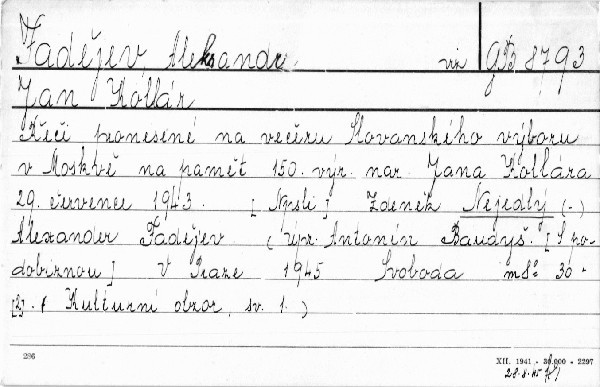 Fadějev, Aleksandr. viz GB 8793
Jan Kollár
Řeči pronesené na večeru Slovanského výboru
v Moskvě na paměť 150. výr. nar. Jana Kollára
29. července 1943. [Napsali] Zdeněk Nejedlý (-)
Alexander Fadějev (upr. Antonín Baudyš. [S po-
dobiznou] V Praze 1945 Svoboda m8° 30-
[2]. ( Kulturní obzor, sv. 1. )
286
XII. 1941 - 30.000 - 2297
28.8.45